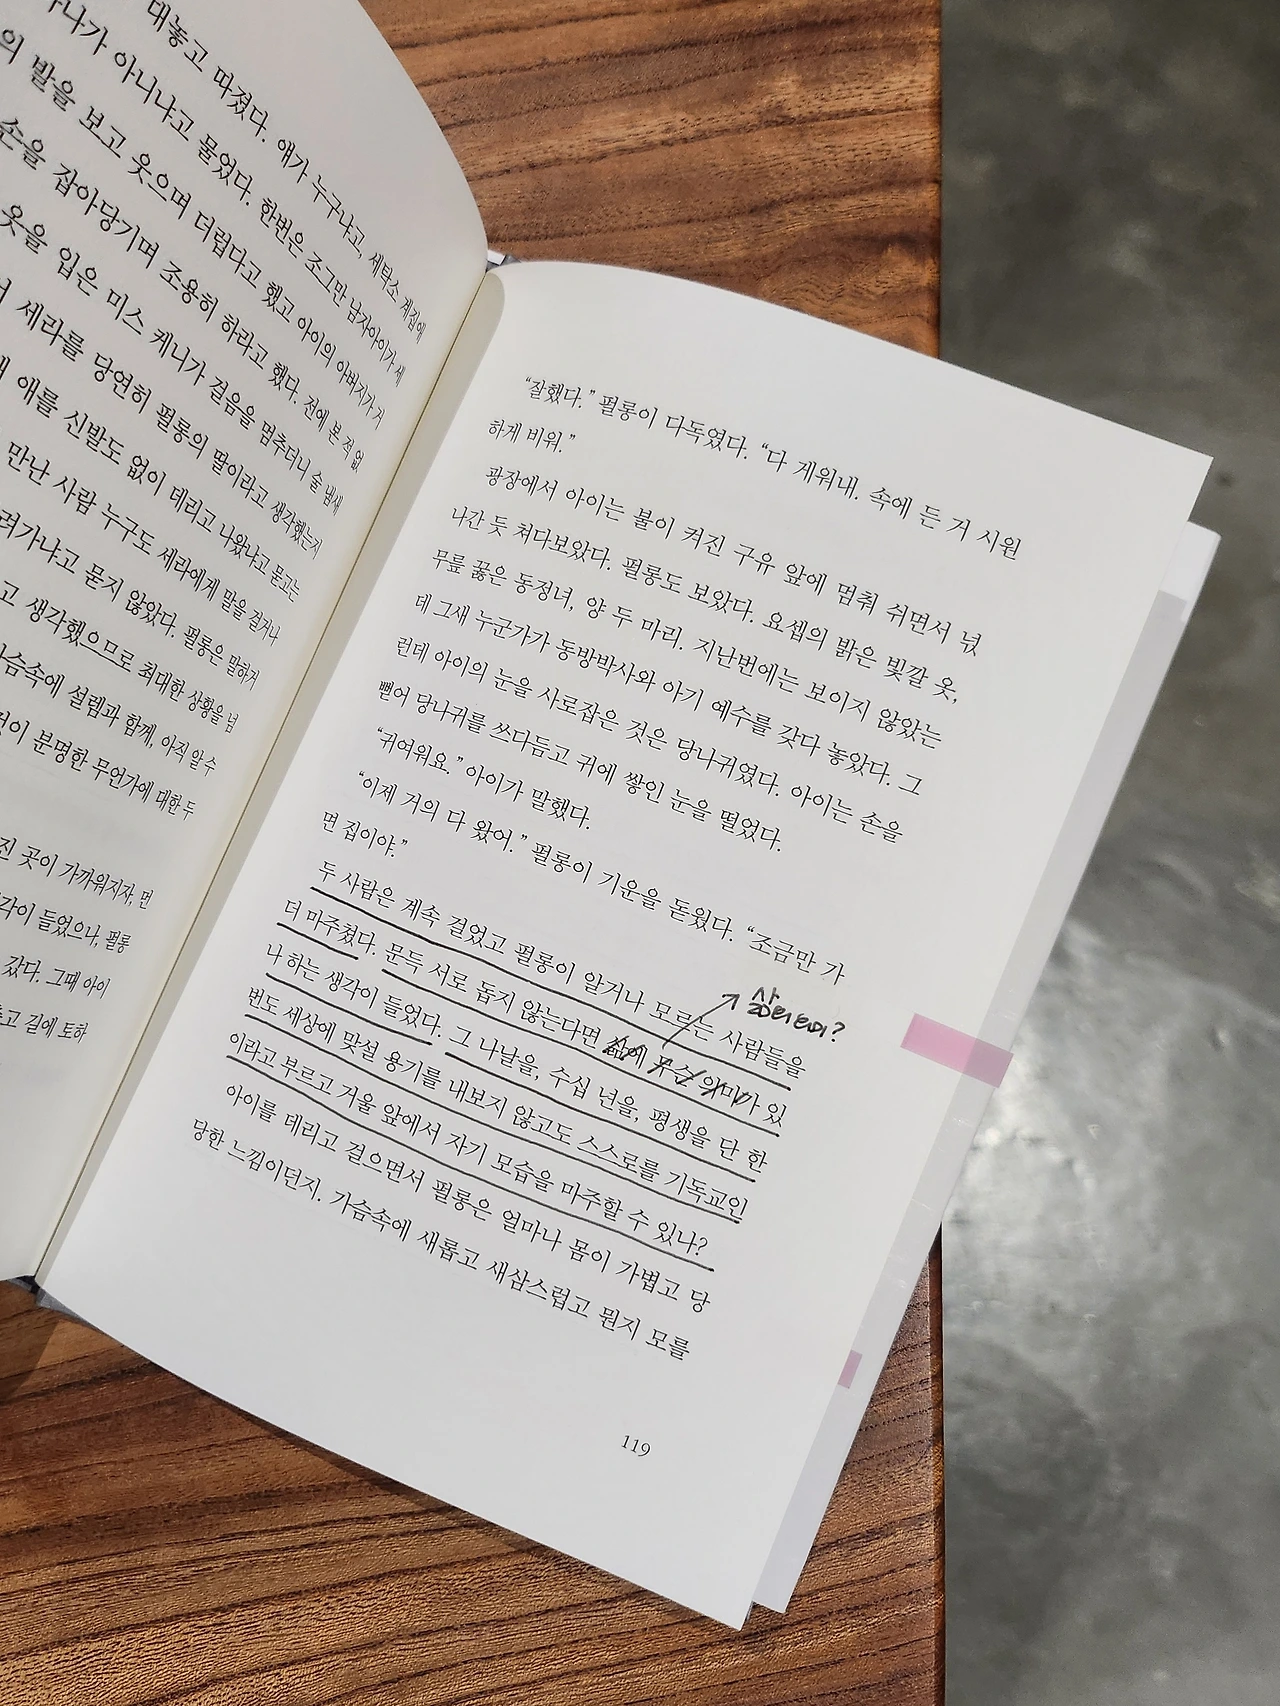 대놓고 따졌다. 얘가 누구냐고, 세탁소 계집애
나가 아니냐고 물었다. 한번은 조그만 남자아이가 세
의 발을 보고 웃으며 더럽다고 했고 아이의 아버지가 거
손을 잡아당기며 조용히 하라고 했다. 전에 본 적 없
옷을 입은 미스 케니가 걸음을 멈추더니 술 냄새
세라를 당연히 펄롱의 딸이라고 생각했는지
애를 신발도 없이 데리고 나왔냐고 묻고는
만난 사람 누구도 세라에게 말을 걸거나
려가냐고 묻지 않았다. 펄롱은 말하거
고 생각했으므로 최대한 상황을 넘
가슴속에 설렘과 함께, 아직 알 수
것이 분명한 무언가에 대한 두
진 곳이 가까워지자, 먼
각이 들었으나, 펄롱
갔다. 그때 아이
추고 길에 토하
“잘했다.” 펄롱이 다독였다. “다 게워내. 속에 든 거 시원
하게 비워.”
광장에서 아이는 불이 켜진 구유 앞에 멈춰 쉬면서 넋
나간 듯 쳐다보았다. 펄롱도 보았다. 요셉의 밝은 빛깔 옷,
무릎 꿇은 동정녀, 양 두 마리. 지난번에는 보이지 않았는
데 그새 누군가가 동방박사와 아기 예수를 갖다 놓았다. 그
런데 아이의 눈을 사로잡은 것은 당나귀였다. 아이는 손을
뻗어 당나귀를 쓰다듬고 귀에 쌓인 눈을 떨었다.
“귀여워요.” 아이가 말했다.
“이제 거의 다 왔어.” 펄롱이 기운을 돋웠다. “조금만 가
면 집이야.”
두 사람은 계속 걸었고 펄롱이 알거나 모르는 사람들을
더 마주쳤다. 문득 서로 돕지 않는다면 삶에 무슨 의미가 있
나 하는 생각이 들었다. 그 나날을, 수십 년을, 평생을 단 한
번도 세상에 맞설 용기를 내보지 않고도 스스로를 기독교인
이라고 부르고 거울 앞에서 자기 모습을 마주할 수 있나?
아이를 데리고 걸으면서 펄롱은 얼마나 몸이 가볍고 당
당한 느낌이던지. 가슴속에 새롭고 새삼스럽고 뭔지 모를
삶의 의미?
119